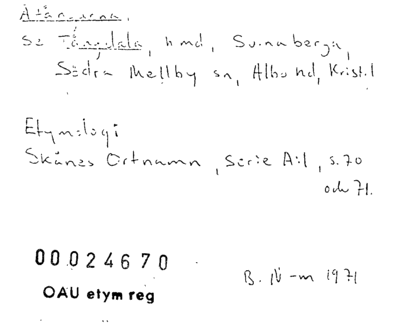 se Tångdala, hmd, Svinaberga,
Södra Mellby sn, Albo hd, Krist.l
Etymologi
Skånes Ortnamn, serie A:1, s. 70
och 71.
00.024670
OAU etym reg
B. N-m 1971